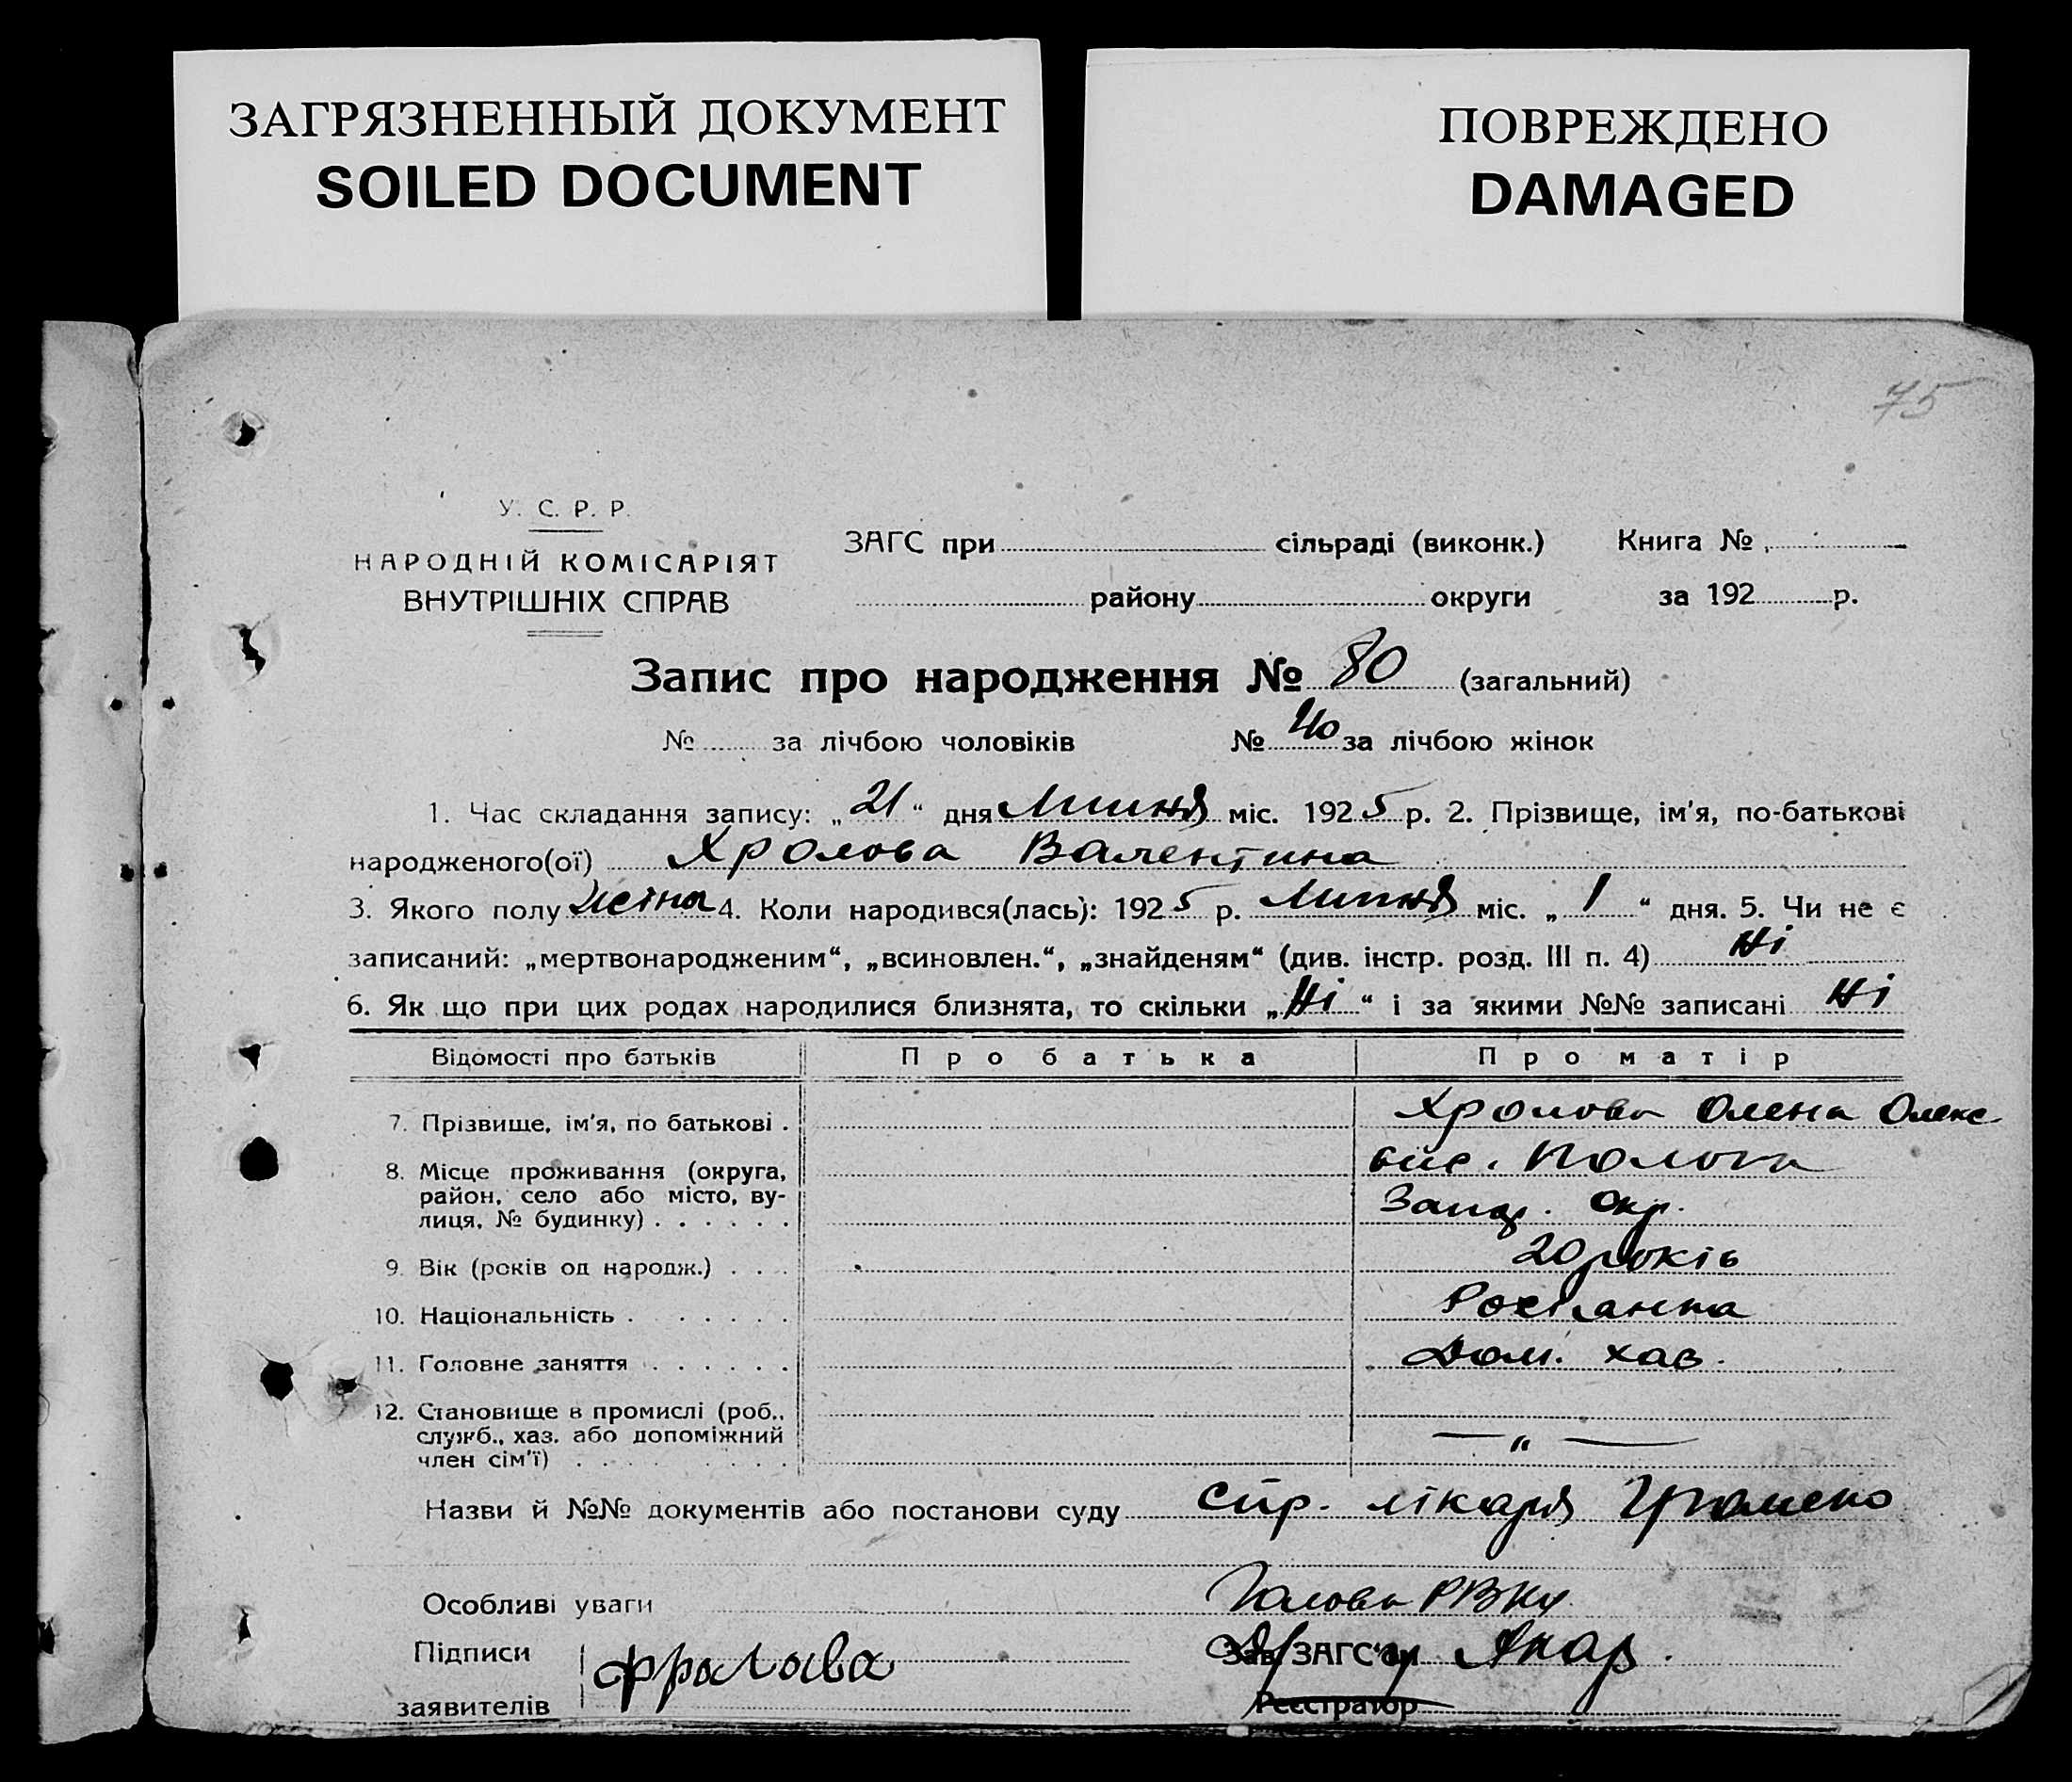 ЗАГРЯЗНЕННЫЙ ДОКУМЕНТ
SOILED DOCUMENT
ПОВРЕЖДЕНО
DAMAGED
75
У. С. Р. Р.
НАРОДНІЙ КОМІСАРІЯТ
ВНУТРІШНІХ СПРАВ
ЗАГС при сільраді (виконк.) Книга №
району округи за 192 р.
Запис про народження № 80 (загальний)
№ за лічбою чоловіків № 40 за лічбою жінок
1. Час складання запису: „21“ дня Липня міс. 1925 р. 2. Прізвище, ім'я, по-батькові
народженого(ої) Хролова Валентина
3. Якого полу жіноч 4. Коли народився(лась): 1925 р. Липня міс. „1“ дня. 5. Чи не є
записаний: „мертвонародженим“, „всиновлен.“, „знайденям“ (див. інстр. розд. III п. 4) Ні
6. Як що при цих родах народилися близнята, то скільки „Ні“ і за якими №№ записані Ні
Відомості про батьків Про батька Про матір
7. Прізвище, ім'я, по батькові . Хролова Олена Олекс
8. Місце проживання (округа, район, село або місто, вулиця, № будинку) . . . . . . Пологи
Запор. Окр.
9. Вік (років од народж.) . . . 20 років
10. Національність . . . . . . Росіанка
11. Головне заняття . . . . . . Дом. хаз.
12. Становище в промислі (роб., служб., хаз. або допоміжний член сім'ї) . . . . . . — „ —
Назви й №№ документів або постанови суду Спр. лікаря
Особливі уваги Голова РВКу
Підписи Фролова Зав. ЗАГС'ом
заявителів Реєстратор